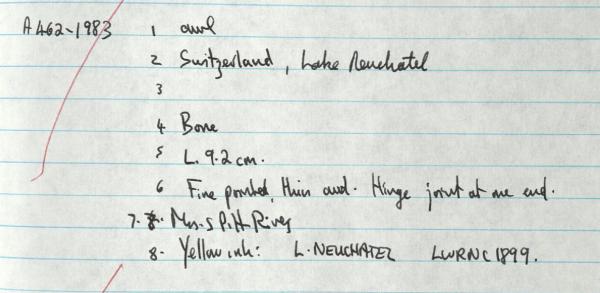 A462-1983 1 awl
2 Switzerland, Lake Neuchatel
3
4 Bone
5 L. 9.2 cm.
6 Fine pointed, thin awl. Hinge joint at one end.
7. Mrs. S Pitt Rivers
8. Yellow ink: L. NEUCHATEL LWRNC 1899.